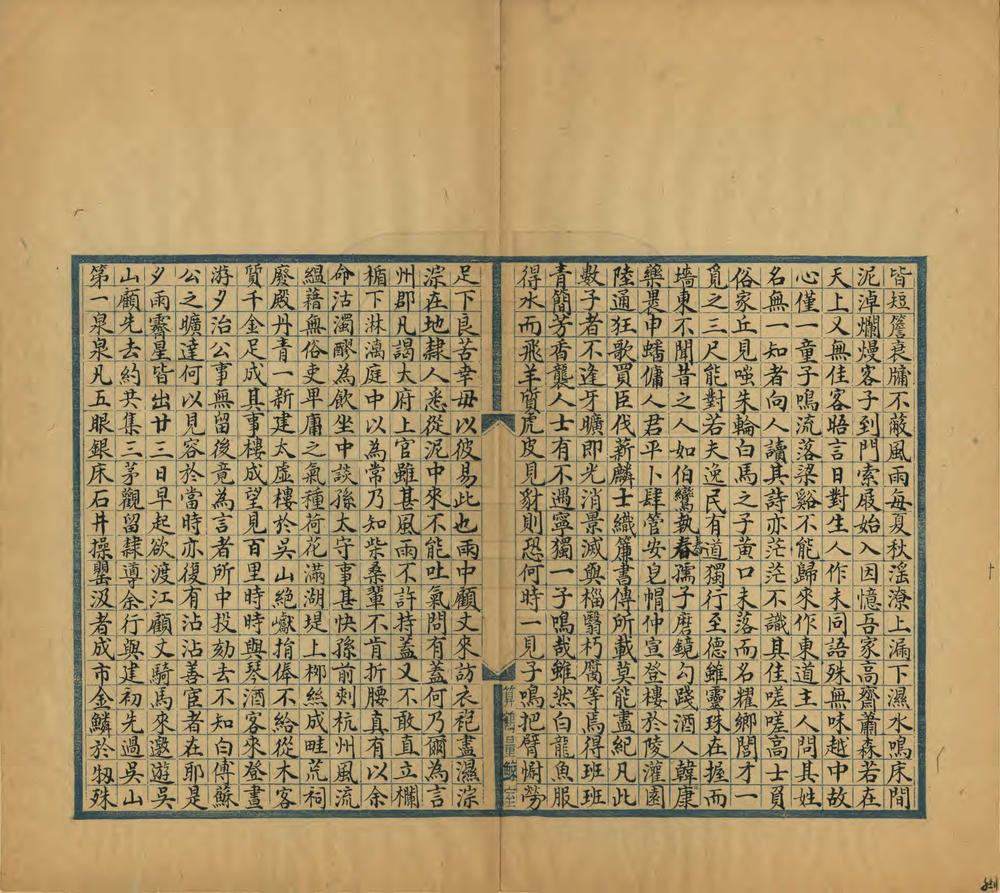 皆短簷衰牗不蔽風雨每夏秋滛潦上漏下濕水鳴床間
泥淖爛熳客子到門索屐始入因憶吾家高齋蕭森若在
天上又無佳客晤言日對生人作未同語殊無味越中故
心僅一童子鳴流落梁谿不能歸來作東道主人問其姓
名無一知者向人讀其詩亦茫茫不識其佳嗟嗟高士員
俗家丘見嗤朱輪白馬之子黃口未落而名耀鄉閭才一
覓之三尺能對若夫逸民有道獨行至德雖靈珠在握而
墻東不聞昔之人如伯鸞執舂孺子磨鏡勾踐酒人韓康
藥畏申蟠傭人君平卜肆管安皂帽仲宣登樓於陵灌園
陸通狂歌買臣伐薪麟士織簾書傳所載莫能盡紀凡此
數子者不逢牙曠即光消景滅與榴翳朽腐等焉得班班
青簡芳香襲人士有不遇寧獨一子鳴哉雖然白龍魚服
得水而飛羊質虎皮見豺則恐何時一見子鳴把臂慰勞
足下良苦幸毋以彼易此也雨中顧丈來訪衣袍盡濕淙
淙在地隷人悉從泥中來不能吐氣問有蓋何乃爾為言
州郡凡謁大府上官雖甚風雨不許持蓋又不敢直立欄
楯下淋漓庭中以為常乃知柴桑輩不肯折腰真有以余
命沽濁醪為飲坐中談孫太守事甚快孫前刺杭州風流
縕藉無俗吏卑庸之氣種荷花滿湖堤上栁絲成畦荒祠
廢殿丹青一新建太虛樓於吳山絶巘捐俸不給從木客
質千金足成其事樓成望見百里時時與琴酒客來登畫
游夕治公事無留後竟為言者所中投劾去不知白傅蘇
公之曠達何以見容於當時亦復有沾沾善宦者在耶是
夕雨霽星皆出廿三日早起欲渡江顧丈騎馬來邀遊吳
山顧先去約共集三茅觀留隷導余行與建初先過吳山
第一泉泉凡五眼銀床石井操罌汲者成市金鱗於牣殊
算鶴量鯨室